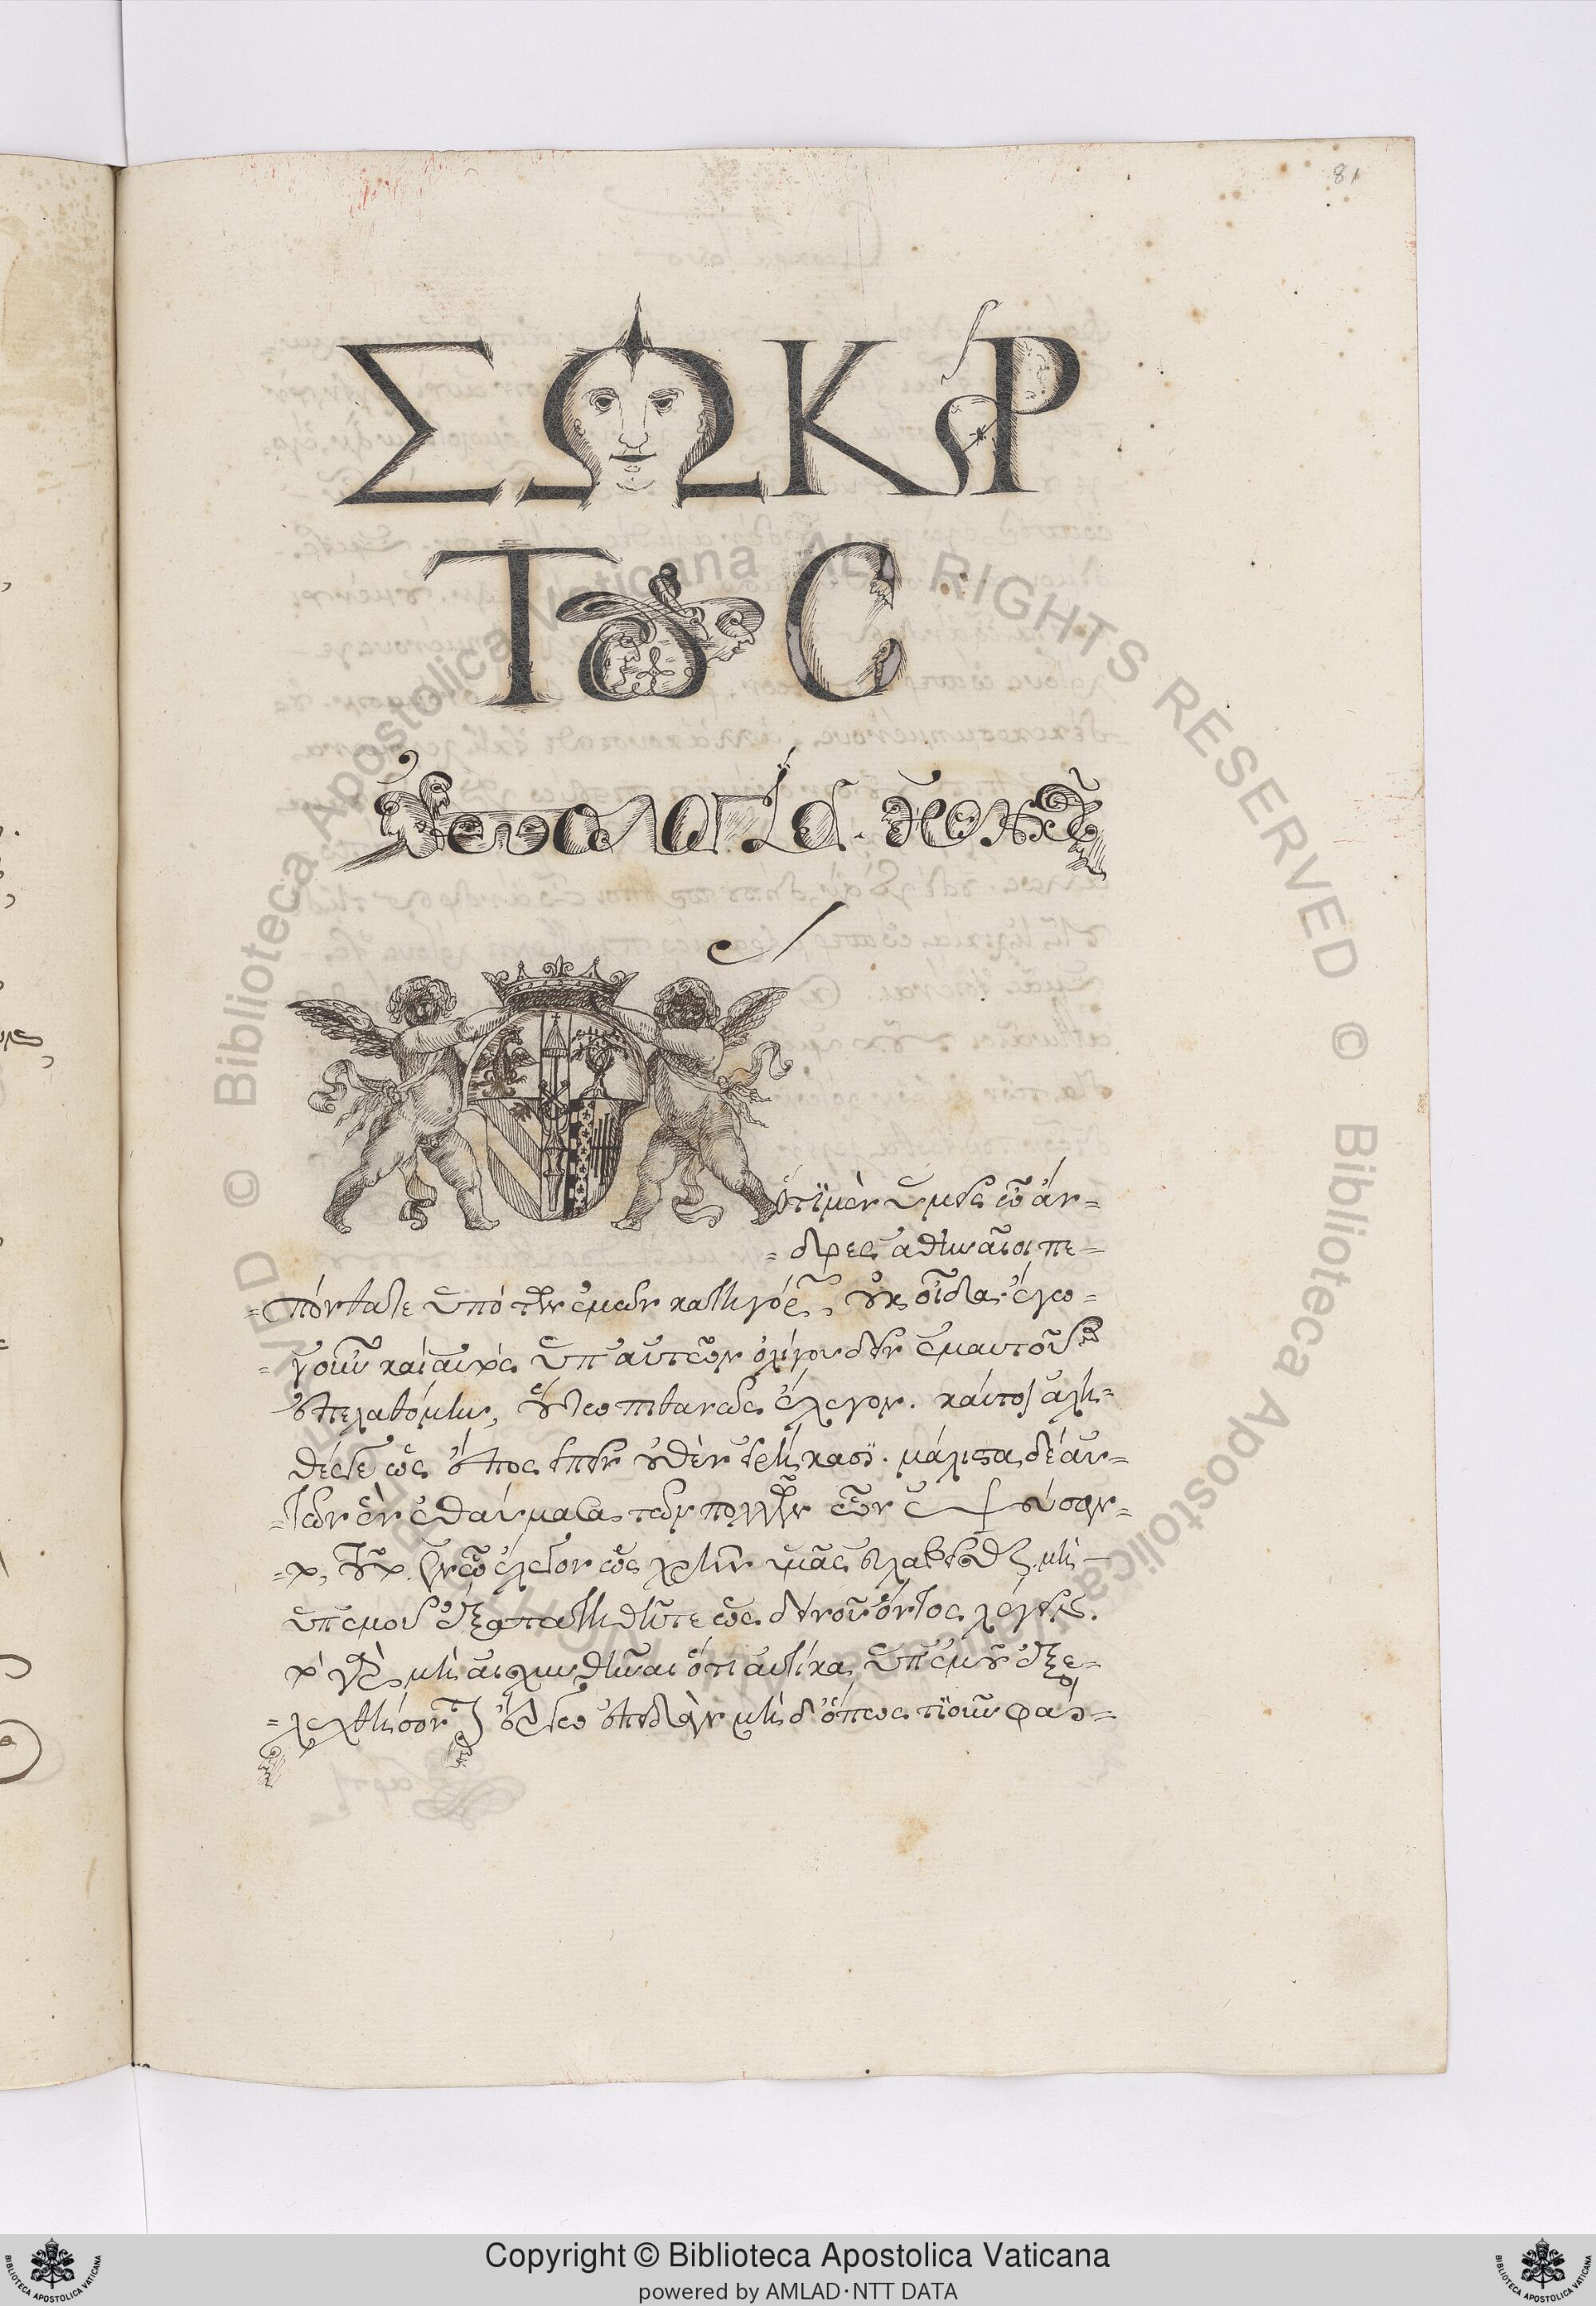 81
ΣΩΚΡ
ΤΟΥC
ἀπολογία
ὅτι μὲν ὑμεῖς ὦ ἄν-
δρες ἀθηναῖοι πε-
πόνθατε ὑπὸ τῶν ἐμῶν κατηγόρων, οὐκ οἶδα. ἐγὼ
γοῦν καὶ αὐτὸς ὑπ' αὐτῶν ὀλίγου δεῖν ἐμαυτοῦ
ἐπελαθόμην, οὕτω πιθανῶς ἔλεγον. καίτοι ἀλη-
θές γε ὡς ἔπος εἰπεῖν οὐθὲν εἰρήκασι. μάλιστα δὲ αὐ-
τῶν ἓν ἐθαύμασα τῶν πολλῶν ὧν ἐψεύσαν-
το, τοῦτο ἐν ᾧ ἔλεγον ὡς χρῆν ὑμᾶς εὐλαβεῖσθαι μὴ
ὑπ' ἐμοῦ ἐξαπατηθῆτε ὡς δεινοῦ ὄντος λέγειν.
τὸ γὰρ μὴ αἰσχυνθῆναι ὅτι αὐτίκα ὑπ' ἐμοῦ ἐξε-
λεχθήσονται ἔργῳ ἐπειδὰν μὴ δ' ὁπωστιοῦν φαί-
Copyright © Biblioteca Apostolica Vaticana
powered by AMLAD·NTT DATA
BIBLIOTECA APOSTOLICA VATICANA
BIBLIOTECA APOSTOLICA VATICANA
© Biblioteca Apostolica Vaticana ALL RIGHTS RESERVED © Biblioteca Apostolica Vaticana